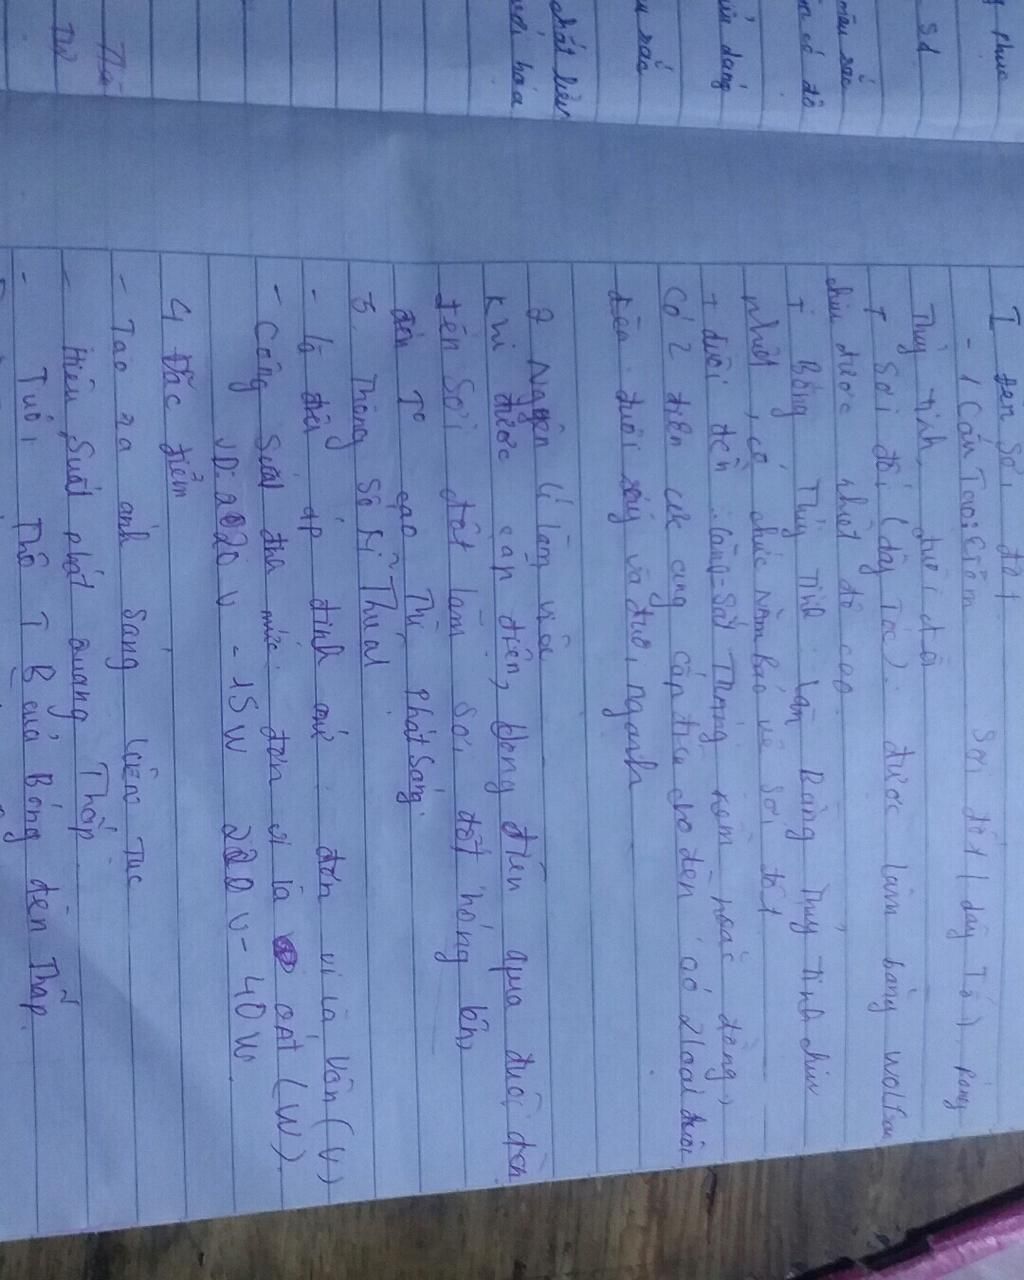 I đèn sợi đốt
- 1 Cấu Tạo: Gồm Sợi đốt (dây Tóc), bóng
Thủy tinh, đuôi đèn
+ Sợi đốt (dây Tóc): được làm bằng
chịu được nhiệt độ cao
+ Bóng Thủy Tinh làm Bằng Thủy Tinh chịu
nhiệt, có chức năm bảo vệ Sợi đốt
+ đuôi đèn: (đồng-Sắt Tráng kẽm hoặc đồng)
Có 2 điện cực cung cấp điện cho đèn có 2 loại đuôi
đèn. đuôi xoáy và đuôi ngạnh
2 Nguyên lí làm việc
Khi được cấp điện, dòng điện qua đuôi đèn
đến Sợi đốt làm Sợi đốt nóng lên,
đến To cao Thì phát sáng
3. Thông Số Kĩ Thuật
- điện áp định mức: đơn vị là Vôn (V)
- Công Suất định mức: đơn vị là oát (W)
VD: 220 V - 15 W 220 V - 40 W
4 đặc điểm
- Tạo ra ánh Sáng liên Tục
- Hiệu Suất phát quang Thấp
- Tuổi Thọ TB của Bóng đèn Thấp.